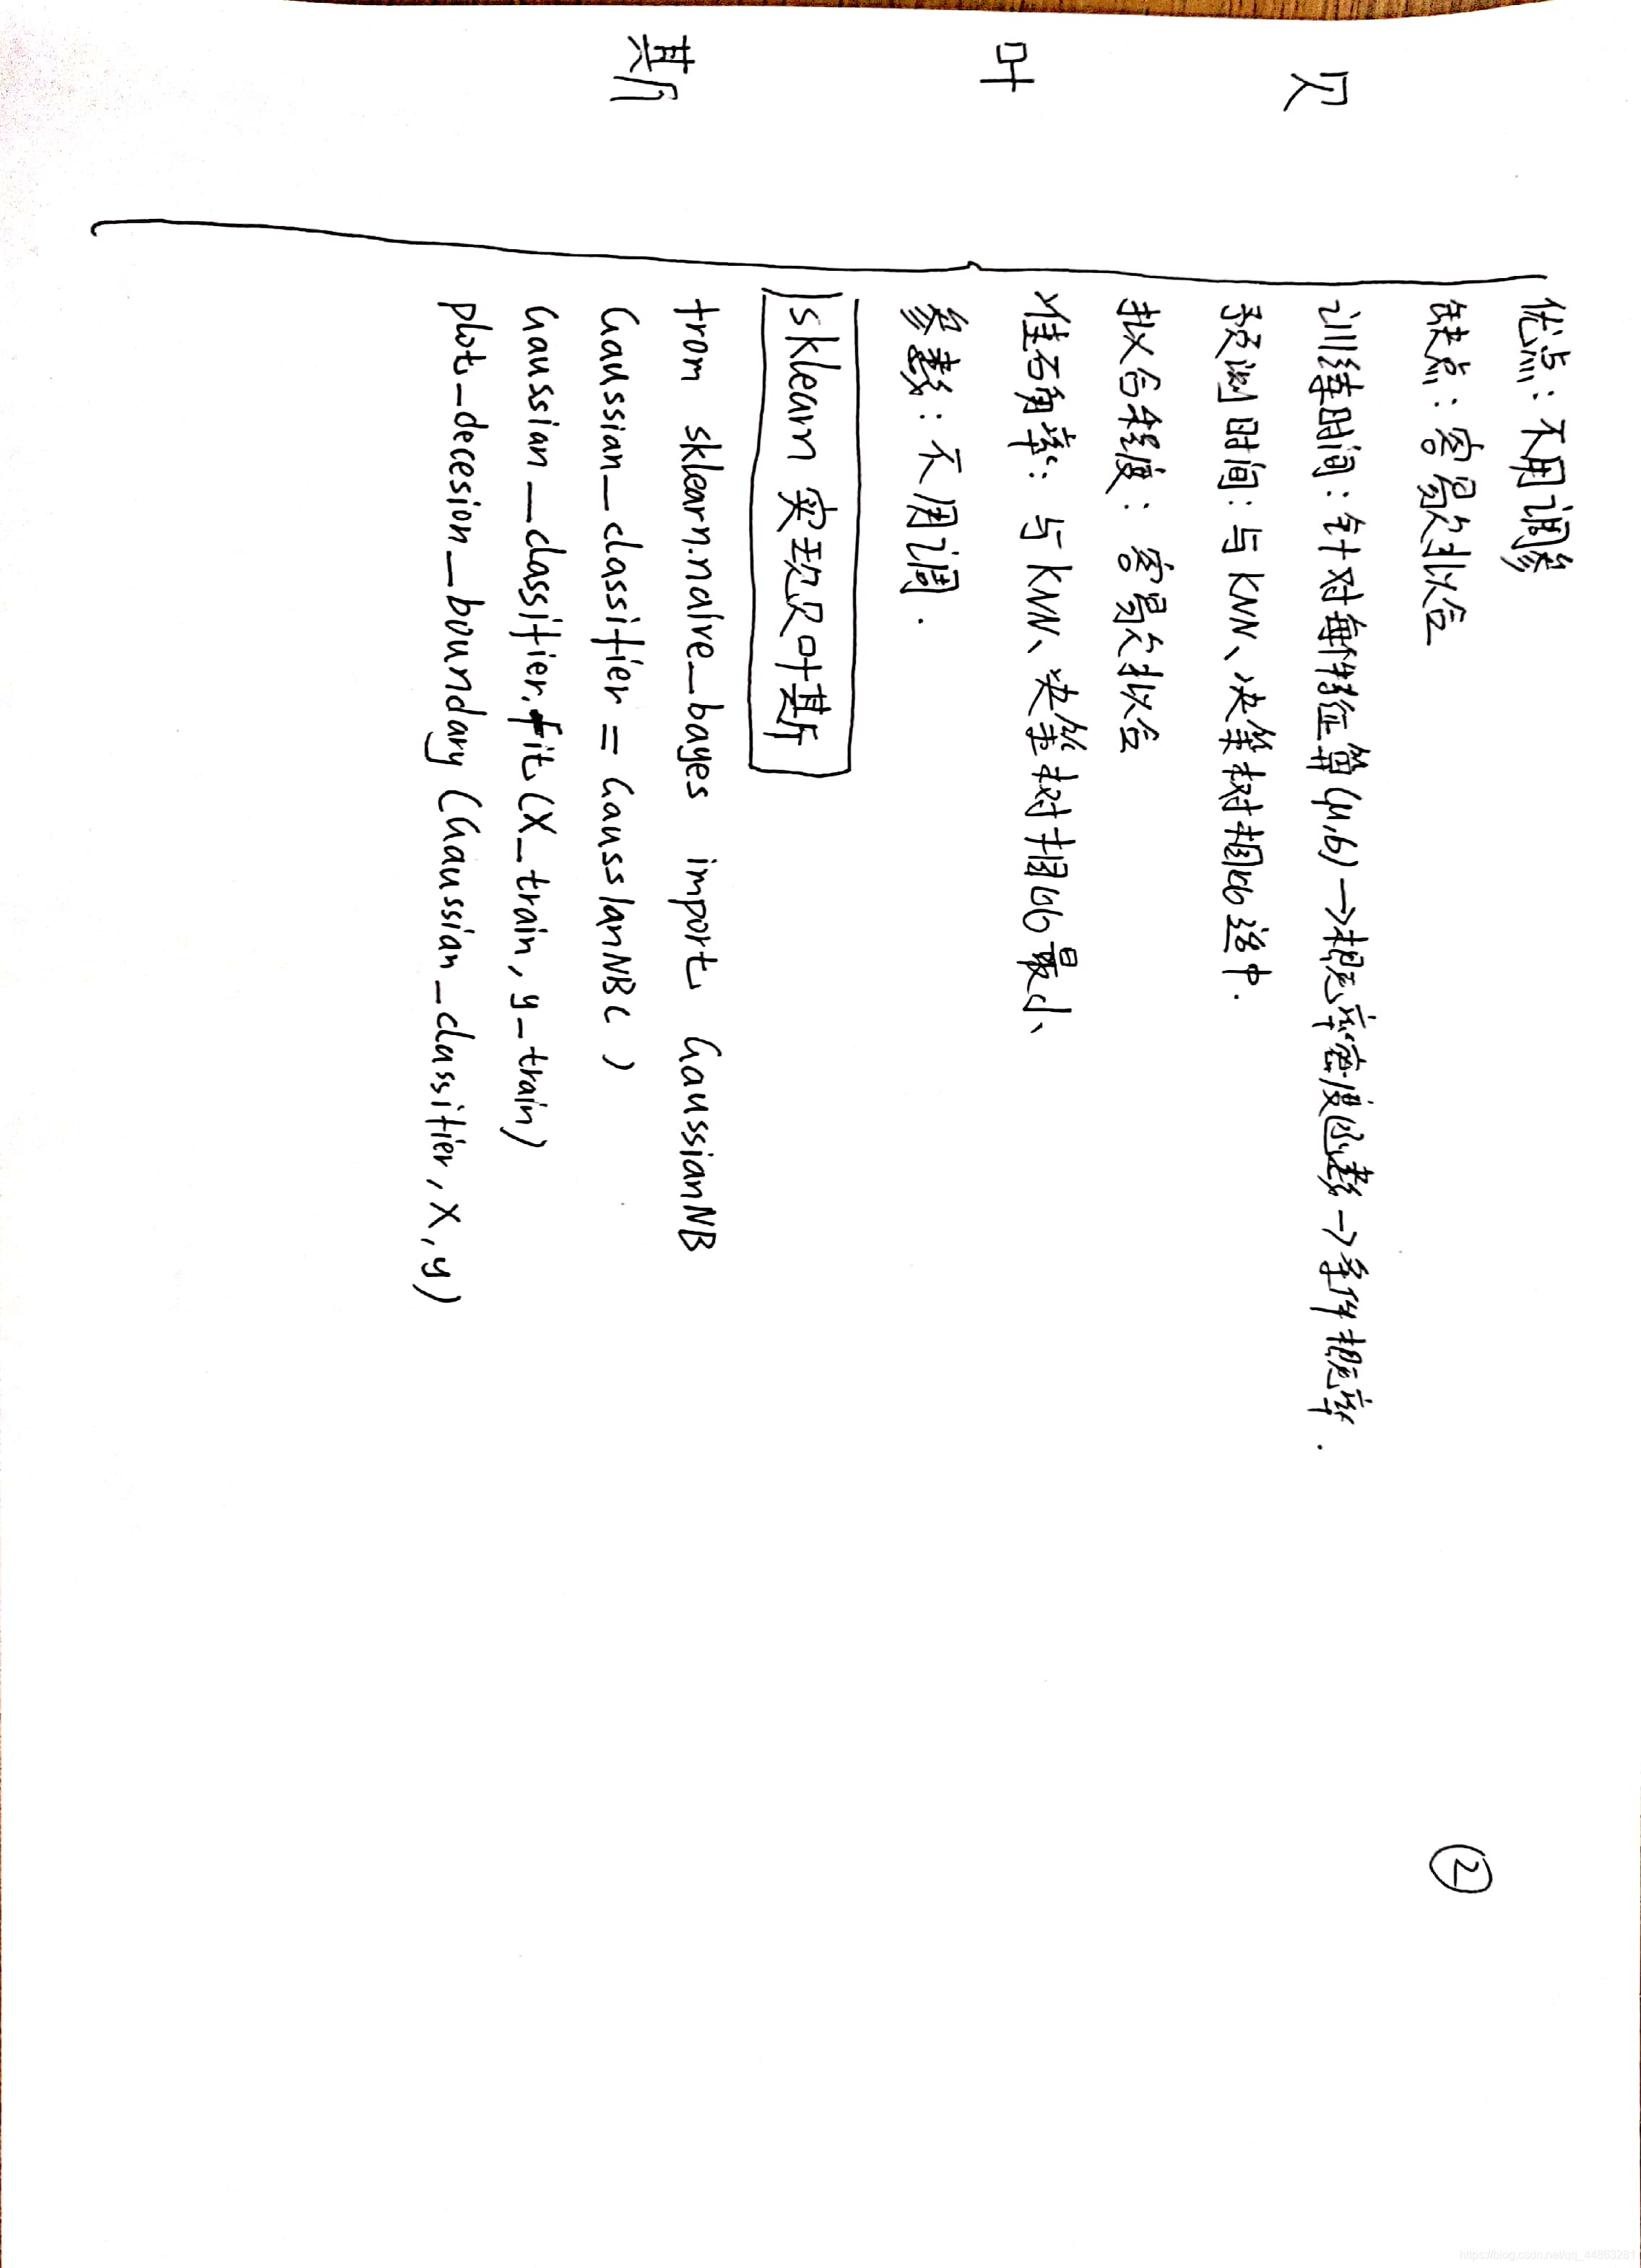 贝叶斯
优点：不用调参
缺点：容易欠拟合
训练时间：针对每个特征算(μ,б)→概率密度函数→条件概率.
预测时间：与KNN、决策树相比适中.
拟合程度：容易欠拟合
准确率：与KNN、决策树相比最小
参数：不用调.
sklearn 实现贝叶斯
from sklearn.naive_bayes import GaussianNB
Gaussian_classifier = GaussianNB()
Gaussian_classifier.fit(X_train, y_train)
plot_decesion_boundary(Gaussian_classifier, X, y)
②
https://blog.csdn.net/qq_44863281